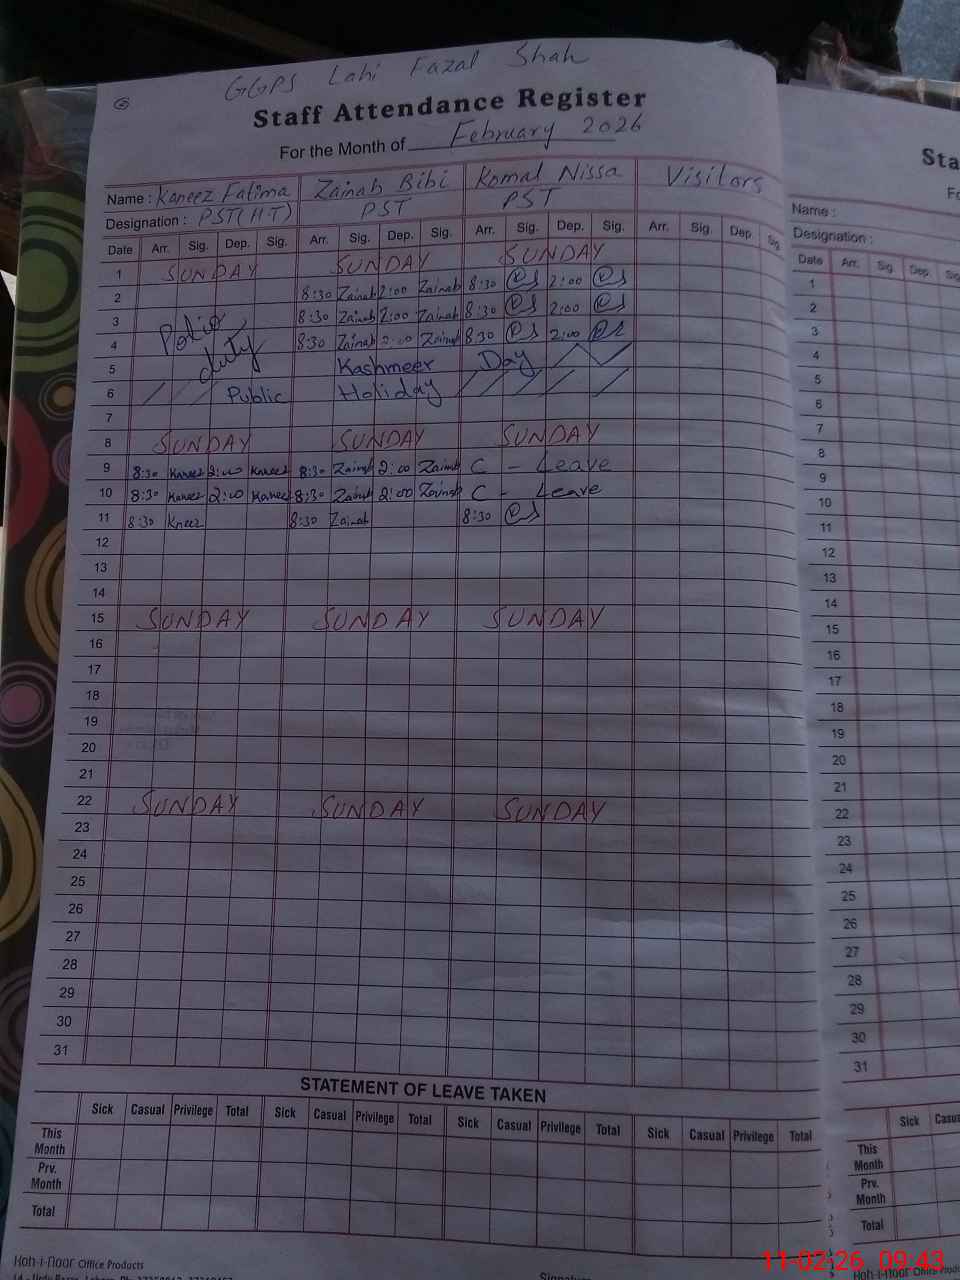 GGPS Lahi Fazal Shah
Staff Attendance Register
For the Month of February 2026
Name : Kaneez Fatima Zainab Bibi Komal Nissa Visitors
Designation : PST (H.T) PST PST
Date Arr. Sig. Dep. Sig. Arr. Sig. Dep. Sig. Arr. Sig. Dep. Sig. Arr. Sig. Dep. Sig.
1 SUNDAY SUNDAY SUNDAY
2 8:30 Zainab 2:00 Zainab 8:30 2:00
3 8:30 Zainab 2:00 Zainab 8:30 2:00
4 Polio duty 8:30 Zainab 2:00 Zainab 8:30 2:00
5 Kashmeer Day
6 Public Holiday
7
8 SUNDAY SUNDAY SUNDAY
9 8:30 Kaneez 2:00 Kaneez 8:30 Zainab 2:00 Zainab C - Leave
10 8:30 Kaneez 2:00 Kaneez 8:30 Zainab 2:00 Zainab C - Leave
11 8:30 Kneez 8:30 Zainab 8:30
12
13
14
15 SUNDAY SUNDAY SUNDAY
16
17
18
19
20
21
22 SUNDAY SUNDAY SUNDAY
23
24
25
26
27
28
29
30
31
STATEMENT OF LEAVE TAKEN
Sick Casual Privilege Total Sick Casual Privilege Total Sick Casual Privilege Total Sick Casual Privilege Total
This Month
Prv. Month
Total
Koh-i-noor Office Products
Sta
Name :
Designation :
Date Arr. Sig. Dep.
1
2
3
4
5
6
7
8
9
10
11
12
13
14
15
16
17
18
19
20
21
22
23
24
25
26
27
28
29
30
31
Sick
This Month
Prv. Month
Total
Koh-i-noor Office
11-02-26 09:43